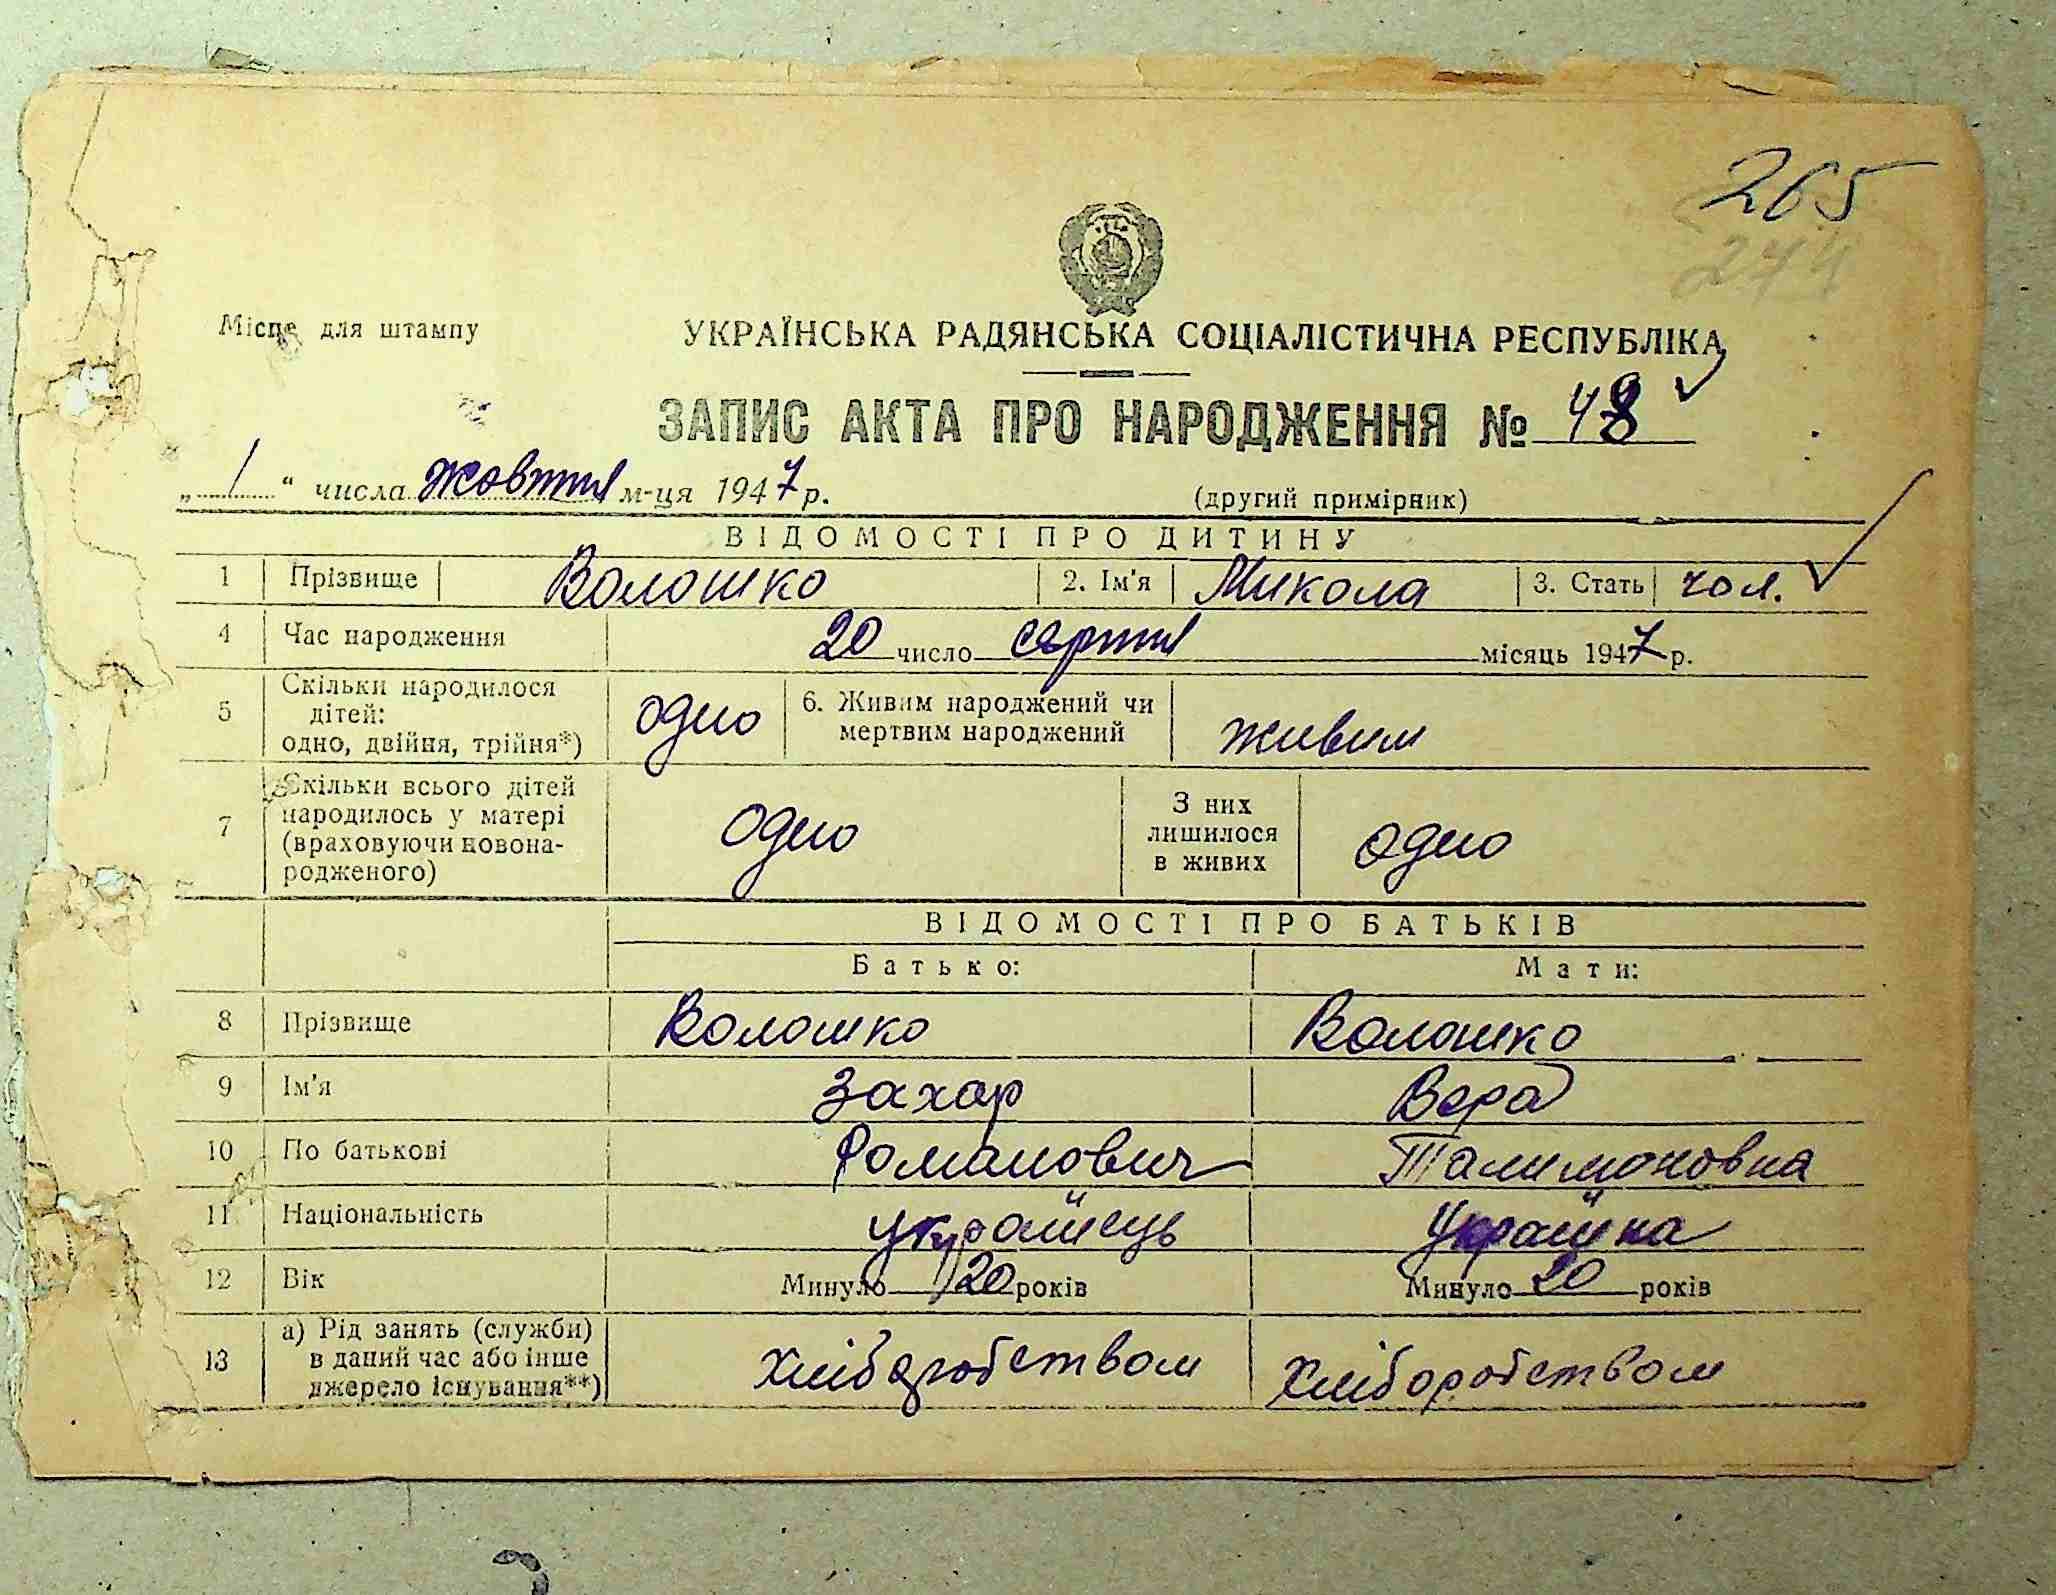 265
244
Місце для штампу
УКРАЇНСЬКА РАДЯНСЬКА СОЦІАЛІСТИЧНА РЕСПУБЛІКА
ЗАПИС АКТА ПРО НАРОДЖЕННЯ № 48
„ 1 “ числа жовтня м-ця 1947 р.
(другий примірник)
ВІДОМОСТІ ПРО ДИТИНУ
1 Прізвище Волошко 2. Ім'я Микола 3. Стать чол.
4 Час народження 20 число серпня місяць 1947 р.
5 Скільки народилося дітей: одно, двійня, трійня*) одно 6. Живим народжений чи мертвим народжений живим
7 Скільки всього дітей народилось у матері (враховуючи новона-родженого) одно З них лишилося в живих одно
ВІДОМОСТІ ПРО БАТЬКІВ
Батько: Мати:
8 Прізвище Волошко Волошко
9 Ім'я Захар Вера
10 По батькові Романович Талимоновна
11 Національність українець Українка
12 Вік Минуло 20 років Минуло 20 років
13 а) Рід занять (служби) в даний час або інше джерело існування**) хліборобством хліборобством